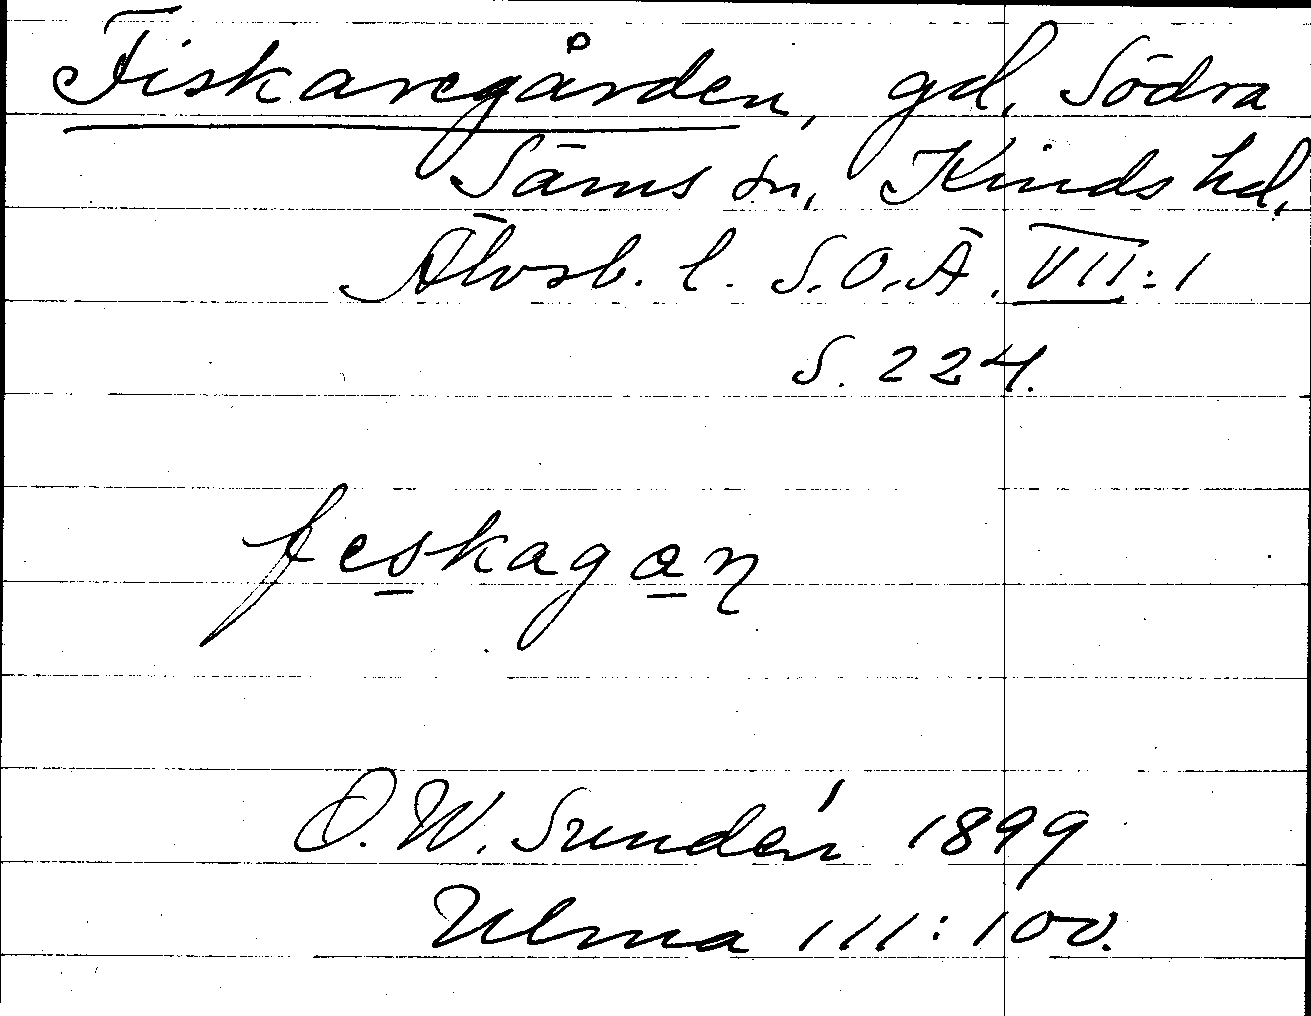 Fiskaregården, gd, Södra
Säms sn, Kinds hd,
Älvsb. l. S.O.Ä. VII:1
S. 224.
feskagaɳ
D. W. Sundén 1899
Ulma 111:100.